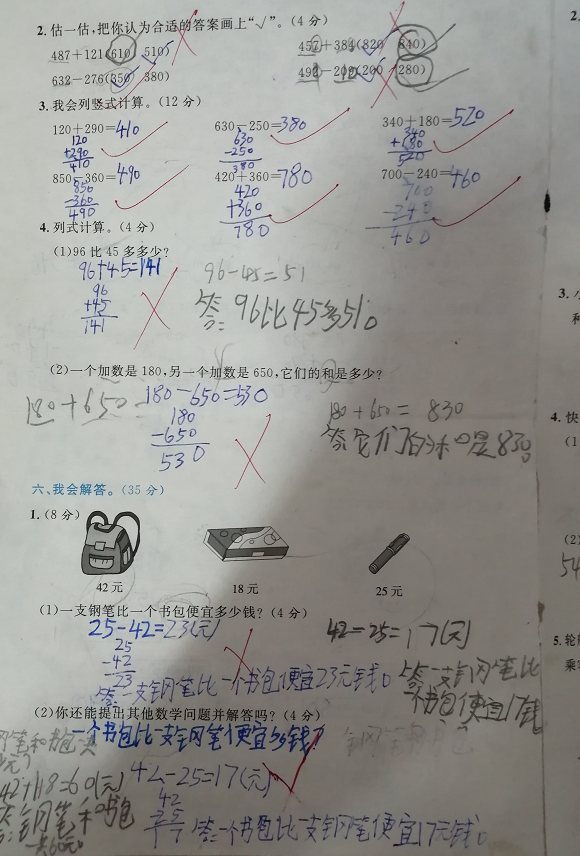 2.估一估,把你认为合适的答案画上“√”。(4分)
487+121(610 510) 457+384(820 840)
632-276(350 380) 492-209(200 280)
3.我会列竖式计算。(12分)
120+290=410 630-250=380 340+180=520
120 630 340
+290 -250 +180
410 380 520
850-360=490 420+360=780 700-240=460
850 420 700
-360 +360 -240
490 780 460
4.列式计算。(4分)
(1)96比45多多少?
96+45=141 96-45=51
96
+45
141
答:96比45多51。
(2)一个加数是180,另一个加数是650,它们的和是多少?
180+650= 180-650=530 180+650=830
180
-650
530
答:它们的和是830。
六、我会解答。(35分)
1.(8分)
42元 18元 25元
(1)一支钢笔比一个书包便宜多少钱?(4分)
25-42=23(元) 42-25=17(元)
25
-42
23
答:一支钢笔比一个书包便宜23元钱。
答:一支钢笔比一个书包便宜17钱
(2)你还能提出其他数学问题并解答吗?(4分)
一个书包比一支钢笔便宜多少钱?
42+18=60(元) 42-25=17(元)
42
25
17
答:一个书包比一支钢笔便宜17元钱。
答:钢笔和书包
一共60元。
2.
3.
4.快
(1
(2)
54
5.轮船
乘客